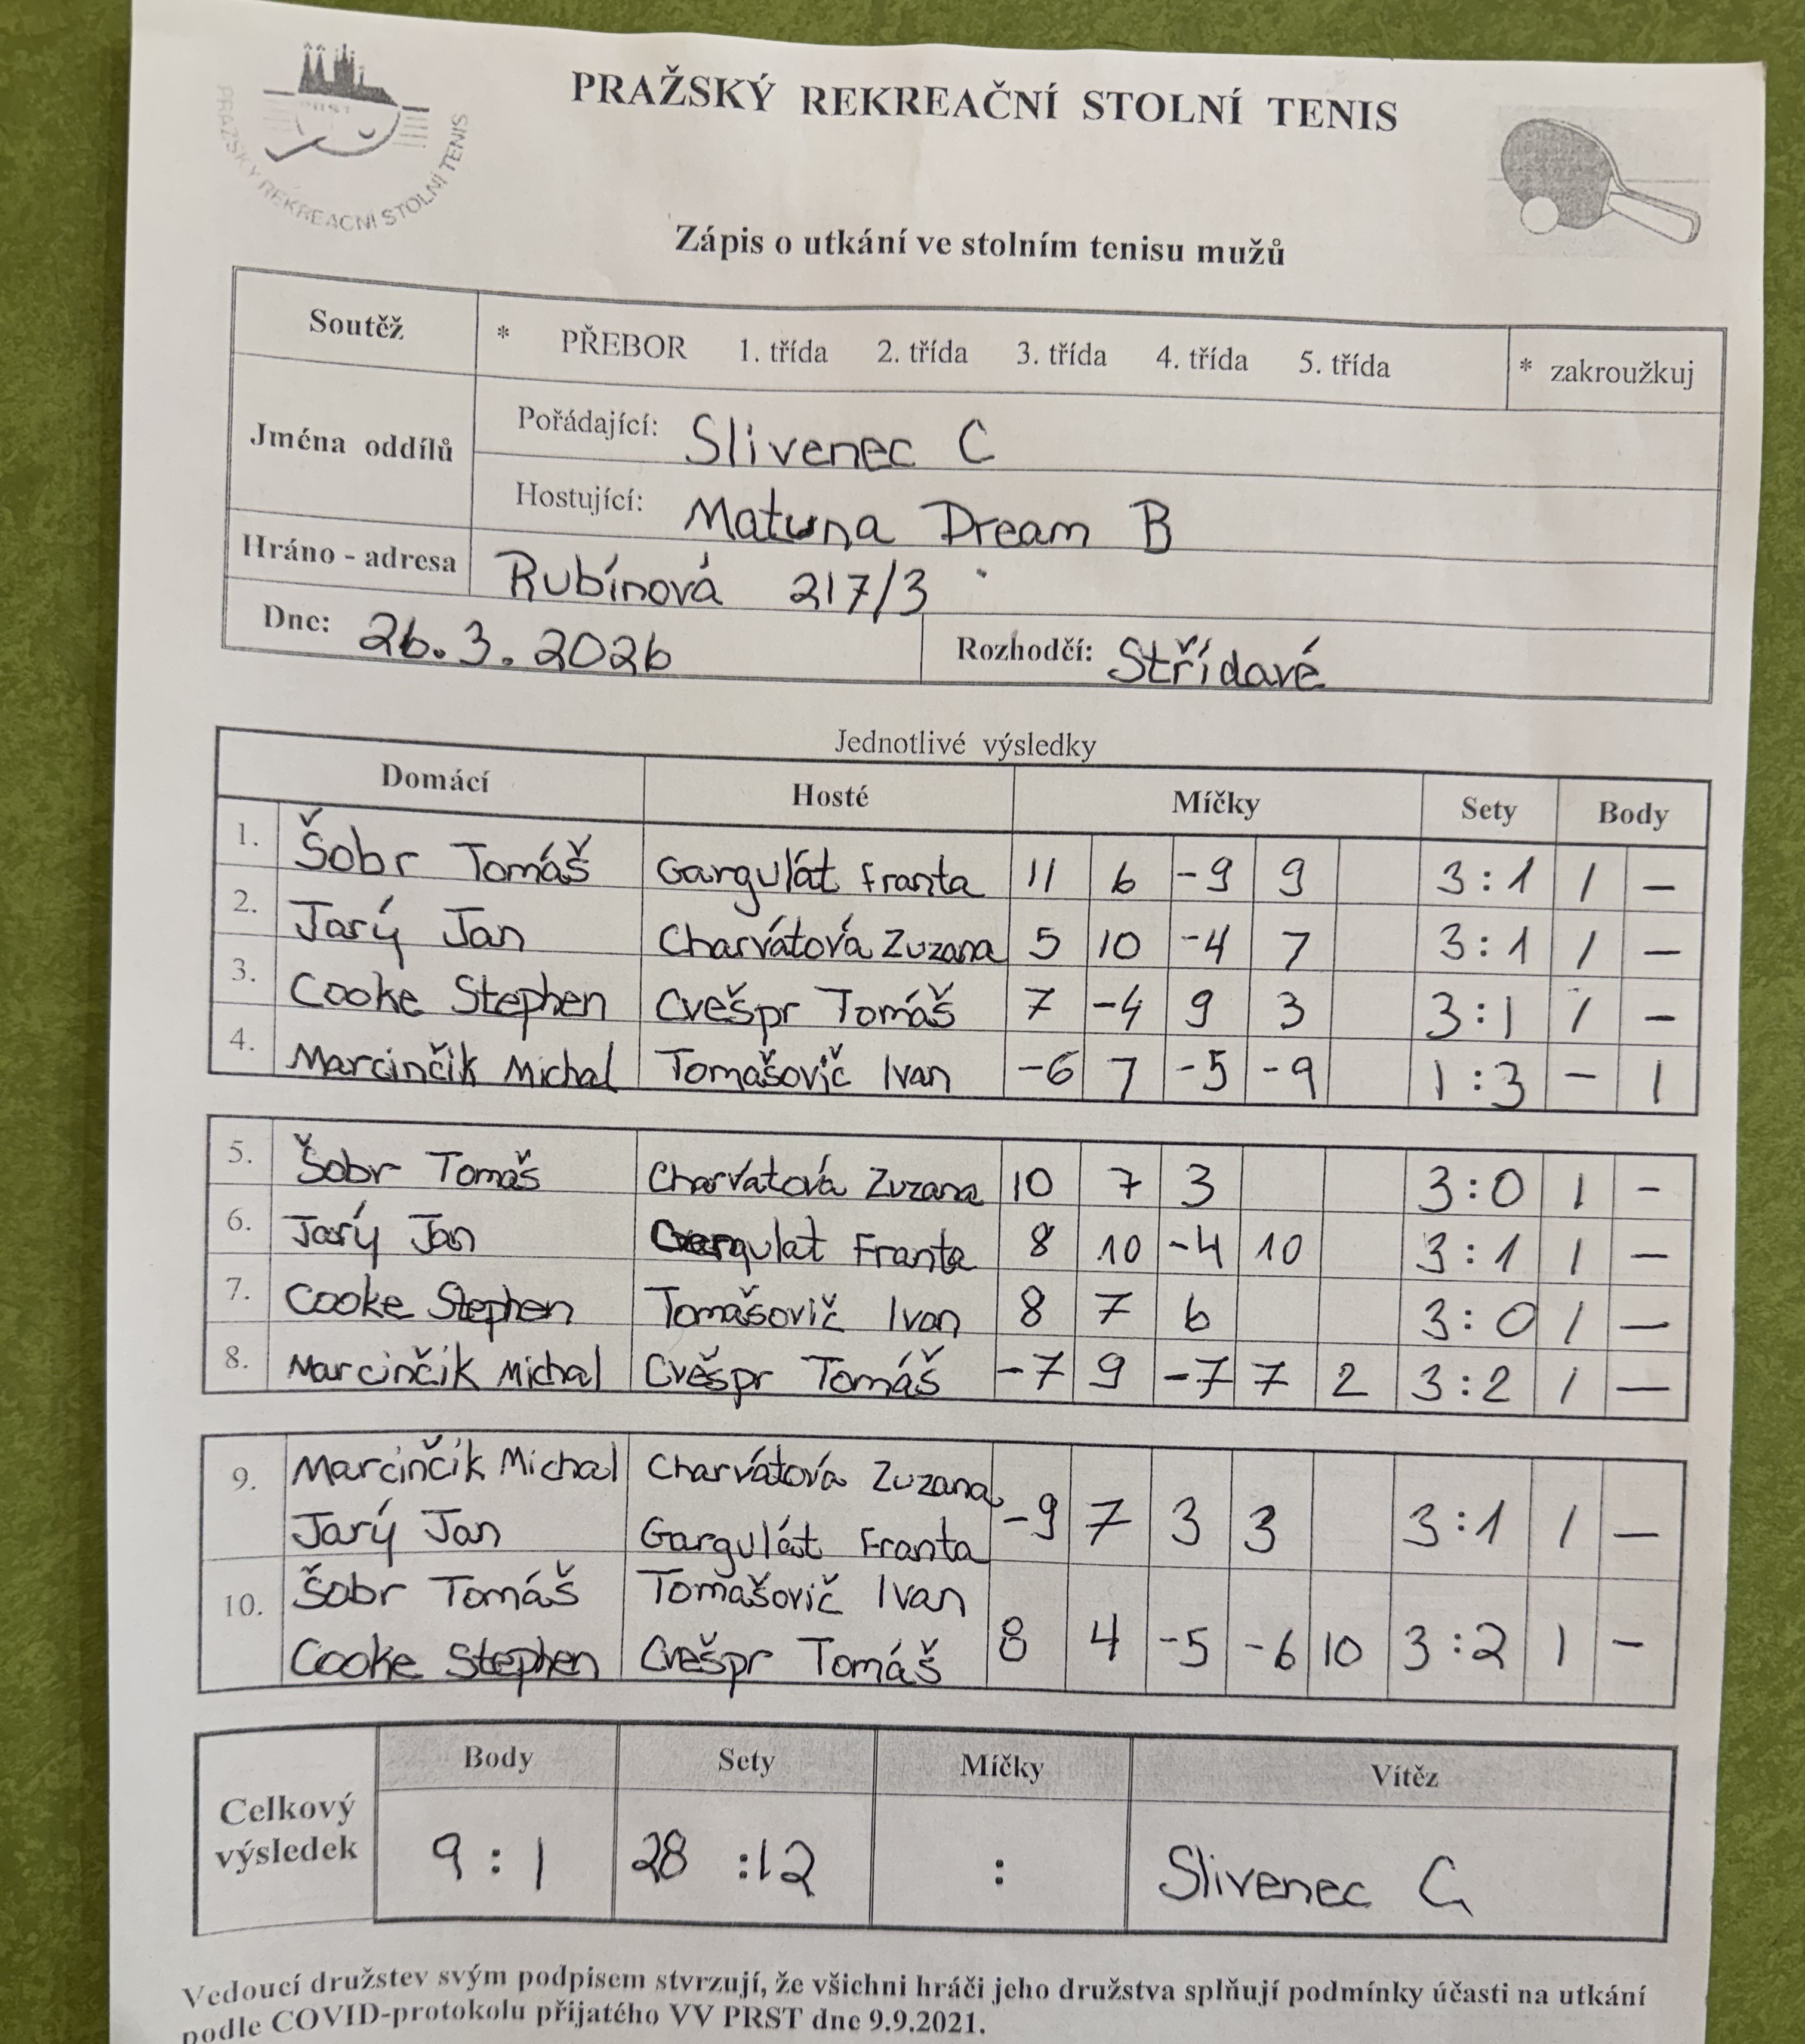 PRST
PRAŽSKÝ REKREAČNÍ STOLNÍ TENIS
PRAŽSKÝ REKREAČNÍ STOLNÍ TENIS
Zápis o utkání ve stolním tenisu mužů
Soutěž * PŘEBOR 1. třída 2. třída 3. třída 4. třída 5. třída * zakroužkuj
Jména oddílů
Pořádající: Slivenec C
Hostující: Matuna Dream B
Hráno - adresa Rubínová 217/3
Dne: 26.3.2026 Rozhodčí: Střídavé
Jednotlivé výsledky
Domácí Hosté Míčky Sety Body
1. Šobr Tomáš Gargulát Franta 11 6 -9 9 3:1 1 -
2. Jarý Jan Charvátová Zuzana 5 10 -4 7 3:1 1 -
3. Cooke Stephen Cvešpr Tomáš 7 -4 9 3 3:1 1 -
4. Marcinčik Michal Tomašovič Ivan -6 7 -5 -9 1:3 - 1
5. Šobr Tomáš Charvátová Zuzana 10 7 3 3:0 1 -
6. Jarý Jan Gargulat Franta 8 10 -4 10 3:1 1 -
7. Cooke Stephen Tomašovič Ivan 8 7 6 3:0 1 -
8. Marcinčik Michal Cvešpr Tomáš -7 9 -7 7 2 3:2 1 -
9. Marcinčik Michal Charvátová Zuzana
Jarý Jan Gargulát Franta -9 7 3 3 3:1 1 -
10. Šobr Tomáš Tomašovič Ivan
Cooke Stephen Cvešpr Tomáš 8 4 -5 -6 10 3:2 1 -
Celkový výsledek
Body Sety Míčky Vítěz
9:1 28:12 : Slivenec C
Vedoucí družstev svým podpisem stvrzují, že všichni hráči jeho družstva splňují podmínky účasti na utkání
podle COVID-protokolu přijatého VV PRST dne 9.9.2021.